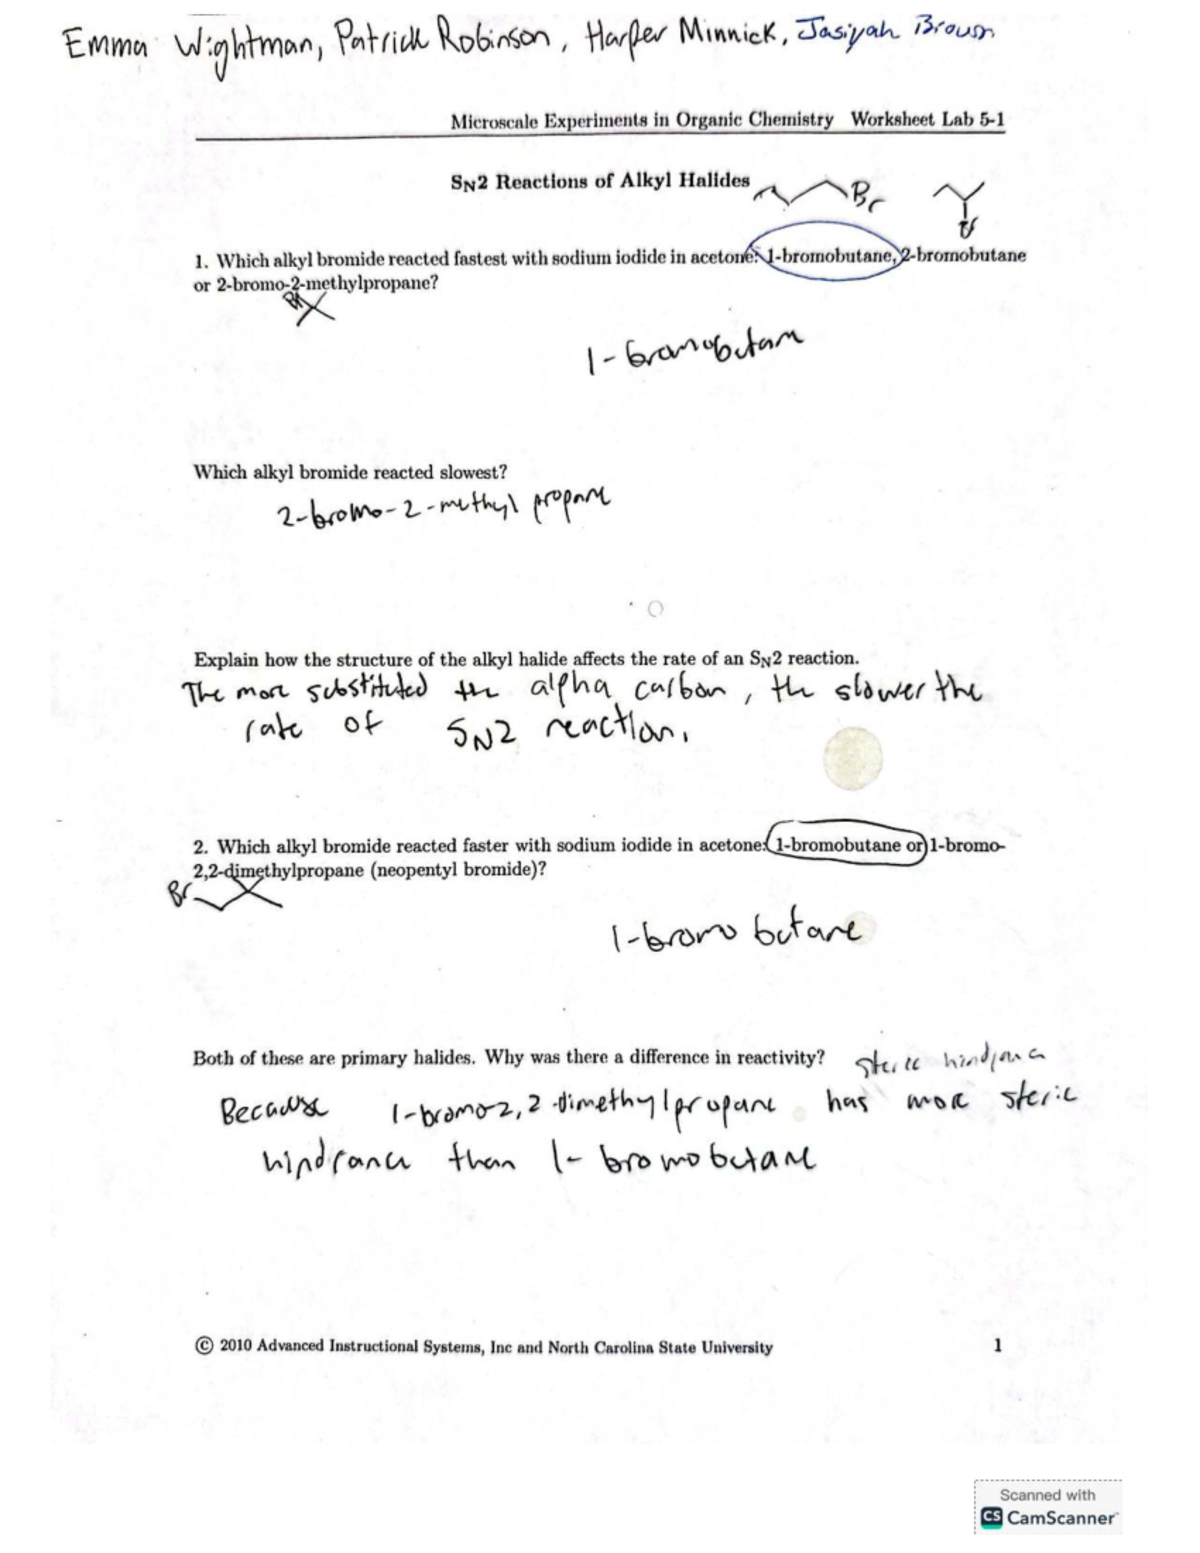 Emma Wightman, Patrick Robinson, Harper Minnick, Jasiyah Brown
Microscale Experiments in Organic Chemistry Worksheet Lab 5-1
SN2 Reactions of Alkyl Halides
Br
Br
1. Which alkyl bromide reacted fastest with sodium iodide in acetone: 1-bromobutane, 2-bromobutane
or 2-bromo-2-methylpropane?
Br
1-bromobutane
Which alkyl bromide reacted slowest?
2-bromo-2-methyl propane
Explain how the structure of the alkyl halide affects the rate of an SN2 reaction.
The more substituted the alpha carbon, the slower the
rate of SN2 reaction.
2. Which alkyl bromide reacted faster with sodium iodide in acetone: 1-bromobutane or 1-bromo-
2,2-dimethylpropane (neopentyl bromide)?
Br
1-bromo butane
Both of these are primary halides. Why was there a difference in reactivity? steric hindrance
Because 1-bromo-2,2-dimethylpropane has more steric
hindrance than 1-bromobutane
© 2010 Advanced Instructional Systems, Inc and North Carolina State University 1
Scanned with
CS CamScanner